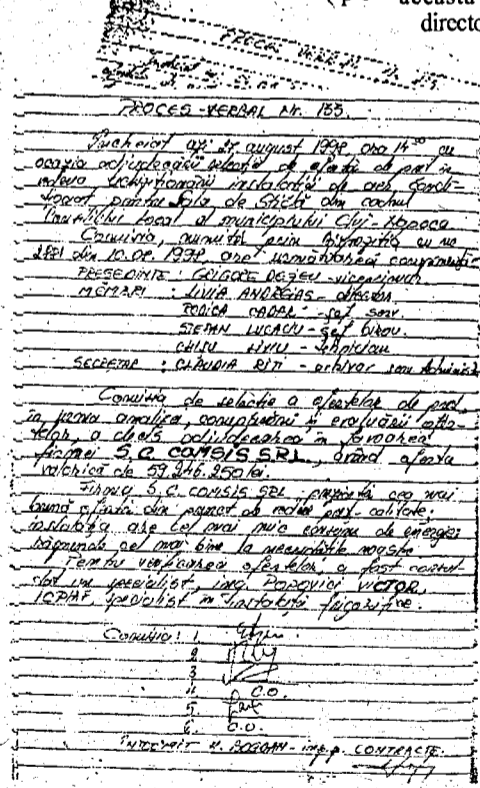 aceasta
directo
PROCES VERBAL Nr. 155
PROCES-VERBAL Nr. 155.
Încheiat azi 27 august 1998, ora 14³⁰ cu
ocazia adjudecării selecției de ofertă de preț în
vederea achiziționării instalației de aer condi-
ționat pentru Sala de Sticlă din cadrul
Consiliului Local al municipiului Cluj-Napoca
Comisia, numită prin Dispoziția cu nr.
din 10.08.1998, are următoarea componență
PREȘEDINTE: GRIGORE DEJEU - viceprimar
MEMBRI: LIVIA ANDREIAȘ - director
RODICA CADAR - șef serv.
ȘTEFAN LUCACIU - șef birou.
LIVIU - tehnician
SECRETAR: CLAUDIA RITI - arhivar serv Administr.
Comisia de selecție a ofertelor de preț,
în urma analizei, comparării și evaluării ofer-
telor, a decis adjudecarea în favoarea
firmei S.C. COMSIS SRL, având oferta
valorică de 59.246.250 lei.
Firma S.C. COMSIS SRL, prezintă cea mai
bună ofertă din punct de vedere preț-calitate;
instalația are cel mai mic consum de energie
răspunde cel mai bine la necesitățile noastre
Pentru verificarea ofertelor, a fost consul-
tat un specialist, ing. POPOVICI VICTOR,
specialist în instalații frigorifice.
Comisia: 1.
2
3
4 C.O.
5
6. C.O.
ÎNTOCMIT M. BOGDAN - insp. CONTRACTE.